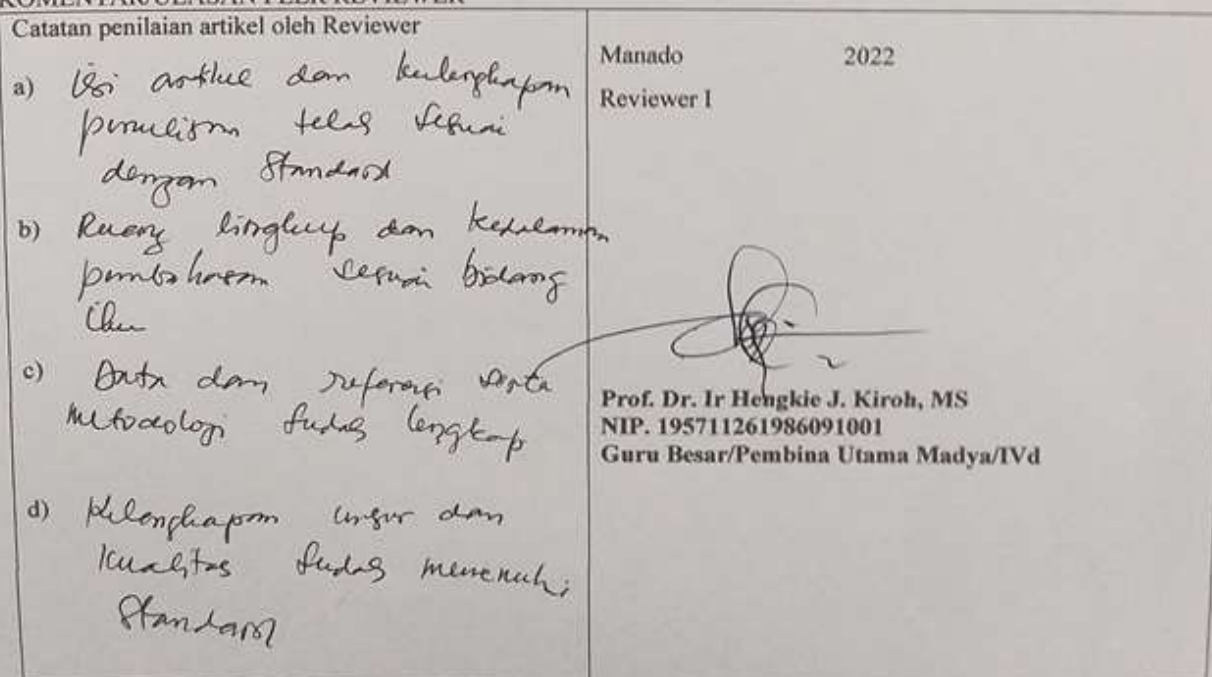 KOMENTAR/ULASAN PEER REVIEWER
Catatan penilaian artikel oleh Reviewer
a) Isi artikel dan kelengkapan
penulisan telah sesuai
dengan Standard
b) Ruang lingkup dan kedalaman
pembahasan sesuai bidang
ilmu
c) Data dan referensi serta
metodologi sudah lengkap
d) Kelengkapan unsur dan
kualitas sudah memenuhi
Standard
Manado 2022
Reviewer I
Prof. Dr. Ir Hengkie J. Kiroh, MS
NIP. 195711261986091001
Guru Besar/Pembina Utama Madya/IVd